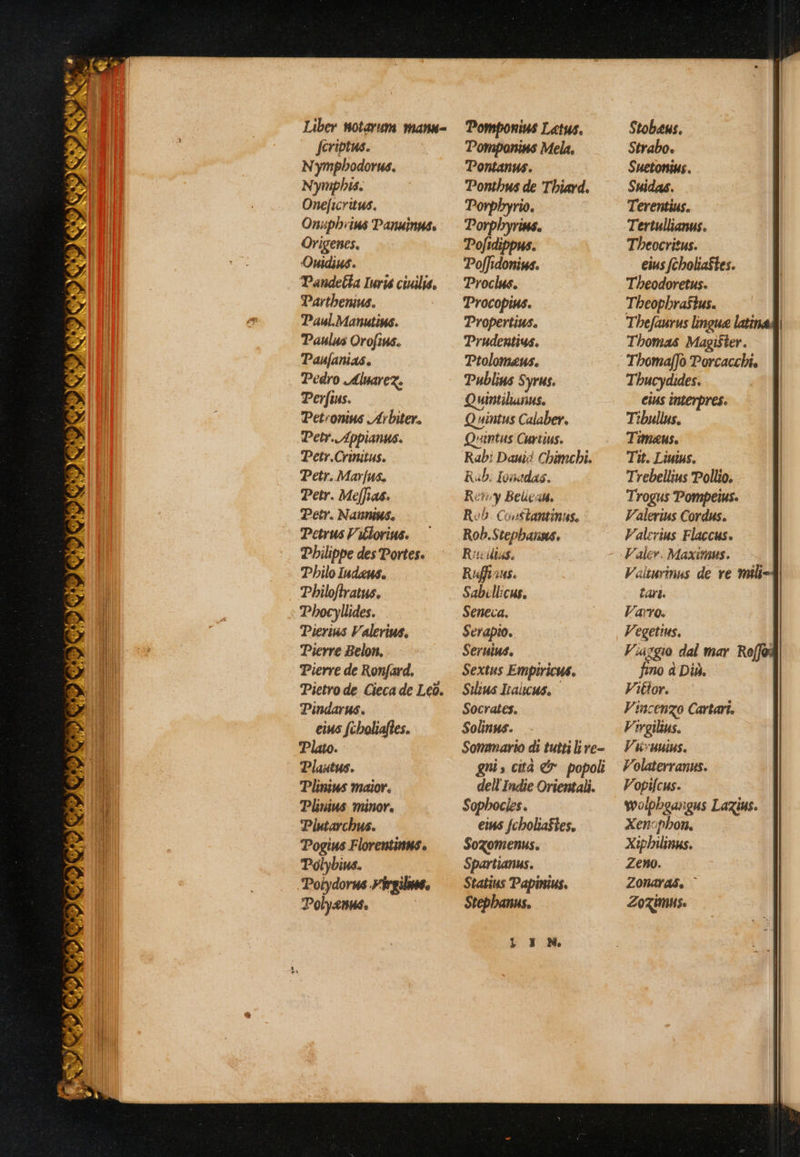 Liber notarum manu-
ſcriptus.
Nymphodorus.
Nymphis.
Oneſicritus.
Onuphrius Panuinus.
Origenes.
Ouidius.
Pandecta Iuris ciuilis.
Parthenius.
Paul.Manutius.
Paulus Oroſius.
Pauſanias.
Pedro Aluarez.
Perſius.
Petronius Arbiter.
Petr.Appianus.
Petr.Crinitus.
Petr. Marſus.
Petr. Meſſias.
Petr. Nannius.
Petrus Victorius.
Philippe des Portes.
Philo Iudæus.
Philoſtratus.
Phocyllides.
Pierius Valerius.
Pierre Belon.
Pierre de Ronſard.
Pietro de Cieca de Leõ.
Pindarus.
eius ſcholiaſtes.
Plato.
Plautus.
Plinius maior.
Plinius minor.
Plutarchus.
Pogius Florentinus.
Polybius.
Polydorus Virgilius.
Polyænus.
Pomponius Lætus.
Pomponius Mela.
Pontanus.
Ponthus de Thiard.
Porphyrio.
Porphyrius.
Poſidippus.
Poſſidonius.
Proclus.
Procopius.
Propertius.
Prudentius.
Ptolomæus.
Publius Syrus.
Quintilianus.
Quintus Calaber.
Quintus Curtius.
Rab: Dauid Chimchi.
Rab. Ionadas.
Remy Belleau.
Rob. Constantinus.
Rob.Stephanus.
Rutilius.
Ruffinus.
Sabellicus.
Seneca.
Serapio.
Seruius.
Sextus Empiricus.
Silius Italicus.
Socrates.
Solinus.
Sommario di tutti li re-
gni, cità & popoli
dell'Indie Orientali.
Sophocles.
eius ſcholiastes.
Sozomenus.
Spartianus.
Statius Papinius.
Stephanus.
Stobæus.
Strabo.
Suetonius.
Suidas.
Terentius.
Tertullianus.
Theocritus.
eius ſcholiastes.
Theodoretus.
Theophrastus.
Theſaurus linguæ latinæ
Thomas Magister.
Thomaſſo Porcacchi.
Thucydides.
eius interpres.
Tibullus.
Timæus.
Tit. Liuius.
Trebellius Pollio.
Trogus Pompeius.
Valerius Cordus.
Valerius Flaccus.
Valer. Maximus.
Valturinus de re mili-
tari.
Varro.
Vegetius.
Viaggio dal mar Roſſo
fino à Diù.
Victor.
Vincenzo Cartari.
Virgilius.
Vitruuius.
Volaterranus.
Vopiſcus.
wolphgangus Lazius.
Xenophon.
Xiphilinus.
Zeno.
Zonaras.
Zozimus.
FIN.